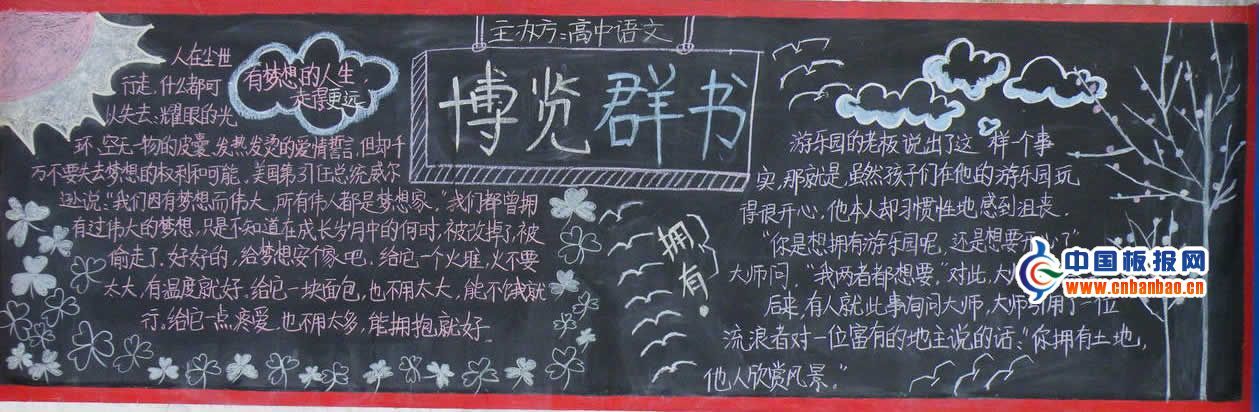 主办方:高中语文
博览群书
有梦想的人生，
走得更远
人在尘世
行走，什么都可
以失去、耀眼的光
环、空无一物的皮囊、发热发烫的爱情誓言，但却千
万不要失去梦想的权利和可能。美国第31任总统威尔
逊说:"我们因有梦想而伟大，所有伟人都是梦想家。"我们都曾拥
有过伟大的梦想，只是不知道在成长岁月中的何时，被改掉了，被
偷走了。好好的，给梦想安个家吧。给它一个火堆，火不要
太大，有温度就好。给它一块面包，也不用太大，能不饿就
行。给它一点疼爱，也不用太多，能拥抱就好。
拥有！
游乐园的老板说出了这样一个事
实，那就是，虽然孩子们在他的游乐园玩
得很开心，他本人却习惯性地感到沮丧。
"你是想拥有游乐园呢，还是想要开心？"
大师问。"我两者都想要。"对此，大
后来，有人就此事询问大师，大师引用了一位
流浪者对一位富有的地主说的话:"你拥有土地，
他人欣赏风景。"
中国板报网
www.cnbanbao.cn